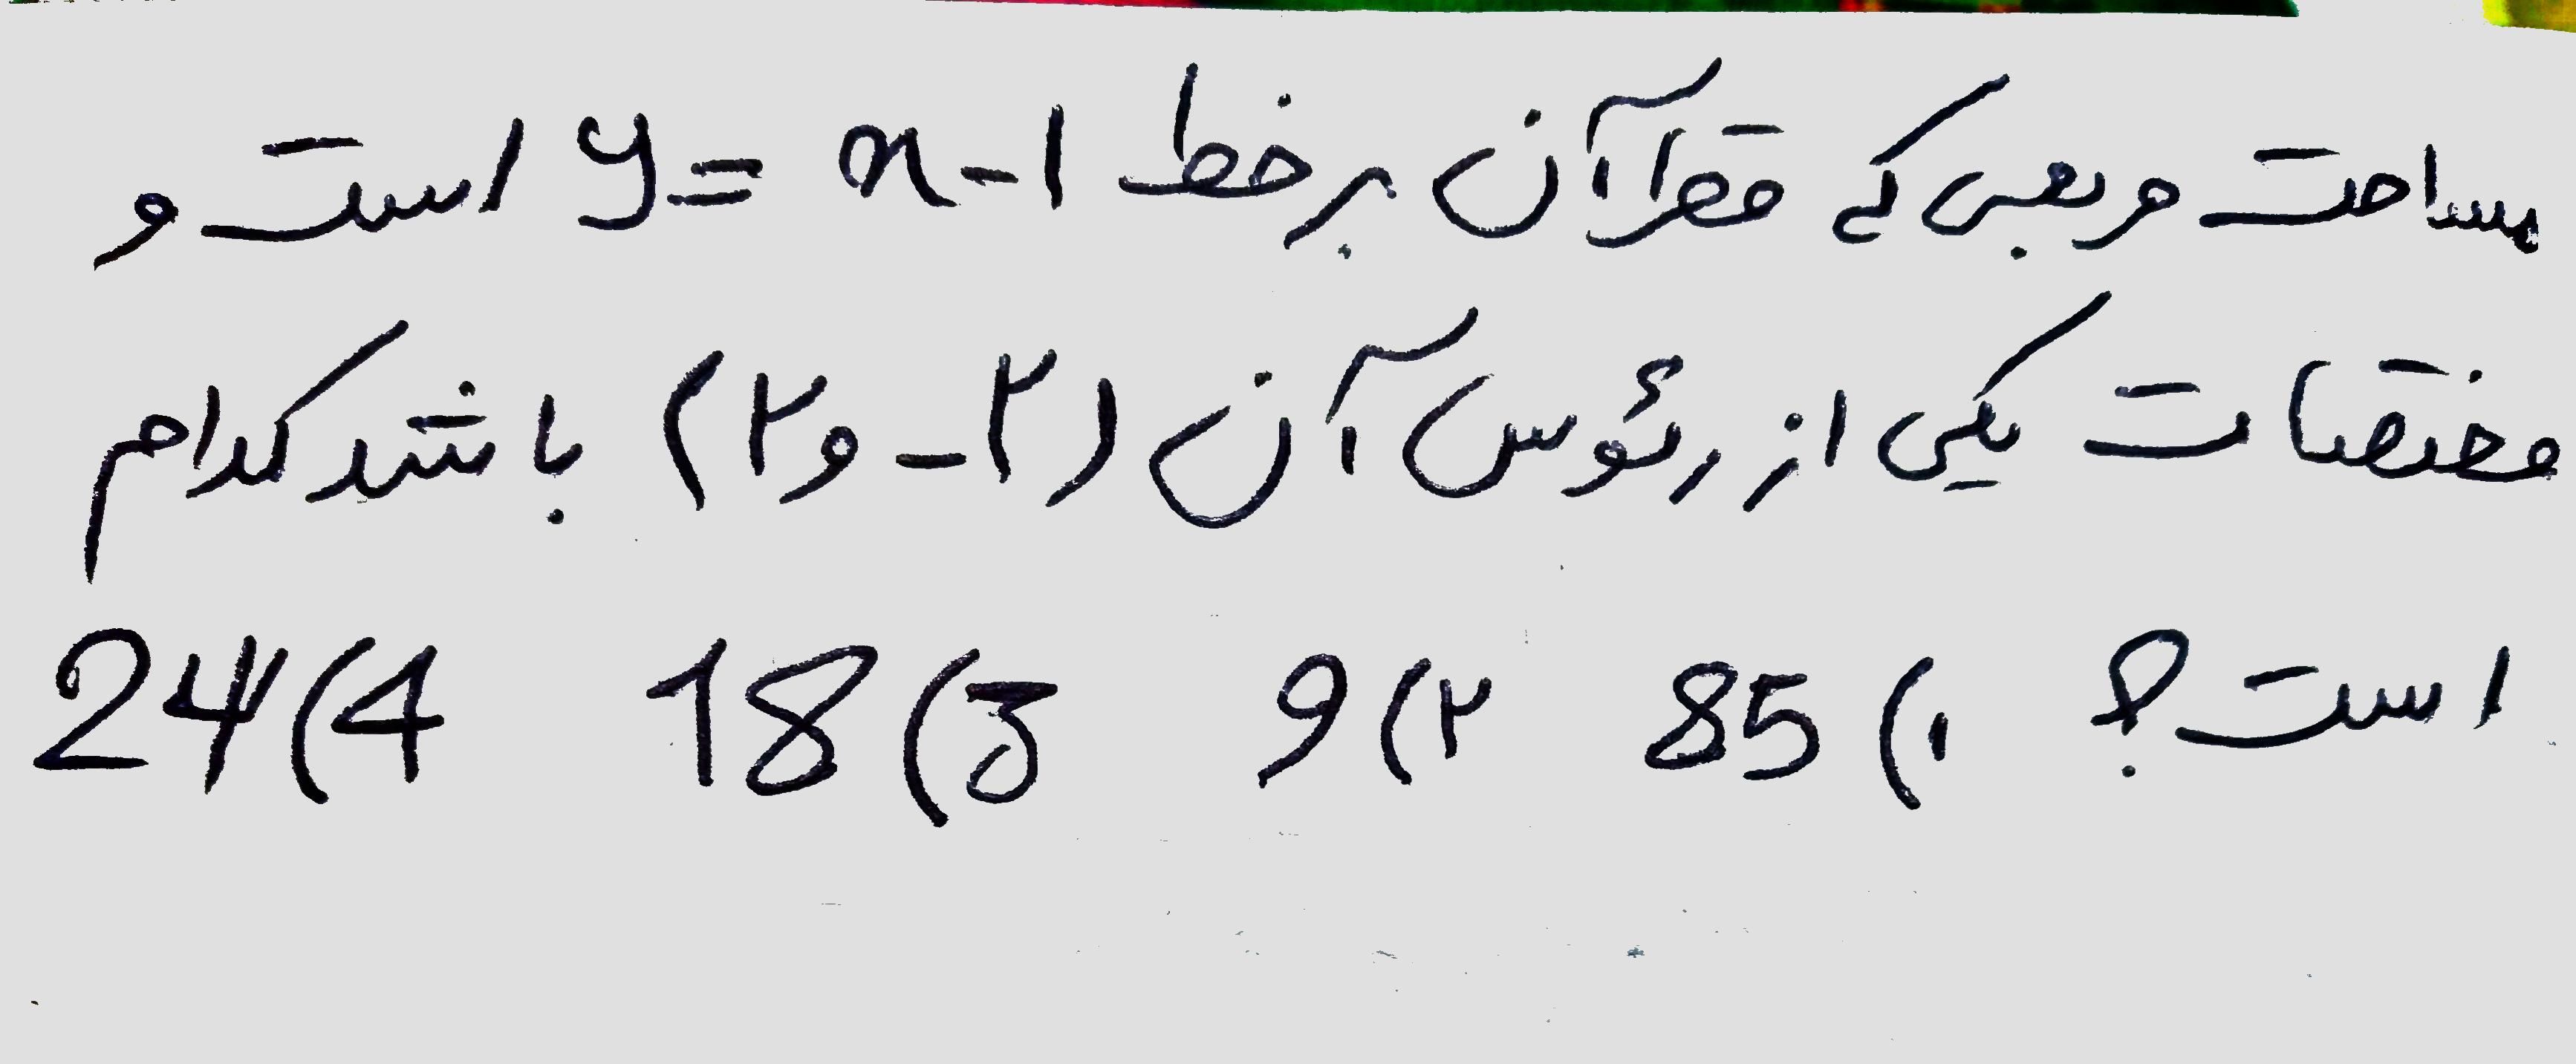 مساحت مربعی که قطر آن بر خط y = x - 1 است و
مختصات یکی از رئوس آن (۲ - و ۲) باشد کدام
است؟ ۱) 85 ۲) 9 3) 18 4) 24